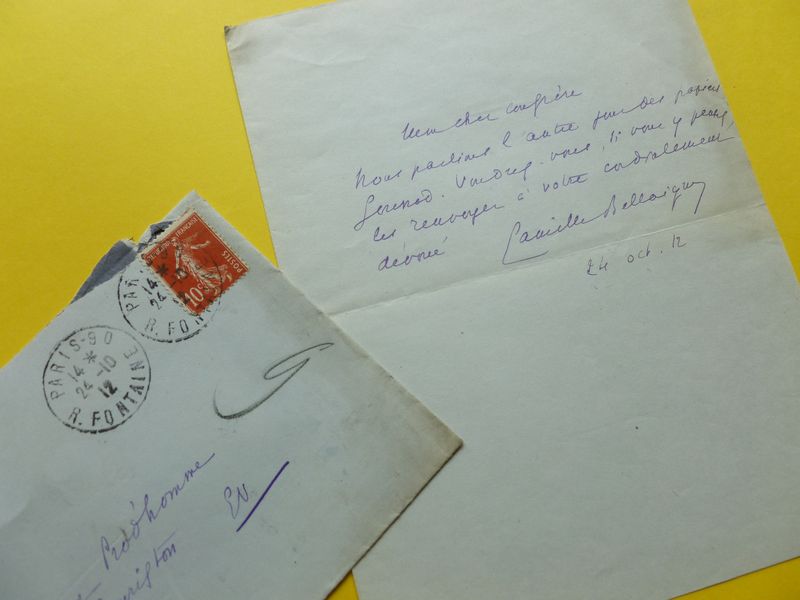 Mon cher confrère
Nous parlions l'autre jour des papiers
Gounod. Voudrez-vous, si vous y pensez,
les renvoyer à votre cordialement
dévoué Camille Bellaigue
24 oct. 12
POSTES
10c
PARIS
14 *
24 -10
R. FONTAINE
PARIS-90
14 *
24 -10
12
R. FONTAINE
Prod'homme
EV.